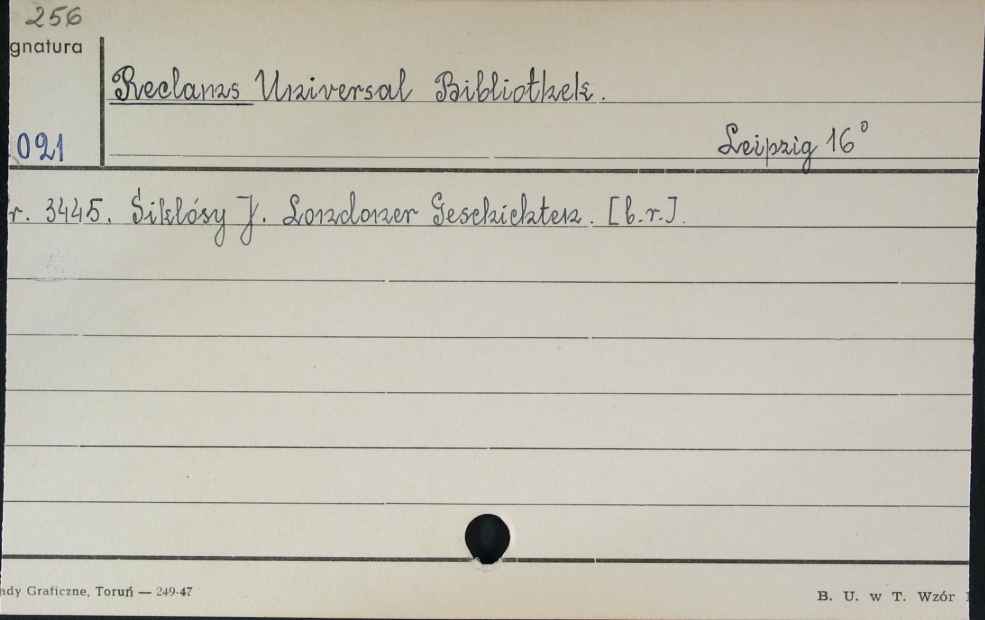 256
gnatura
Reclams Universal Bibliothek.
Leipzig 16°
021
r. 3445. Siklósy J. Londoner Geschichten. [b.r.].
dy Graficzne, Toruń — 249-47
B. U. w T. Wzór